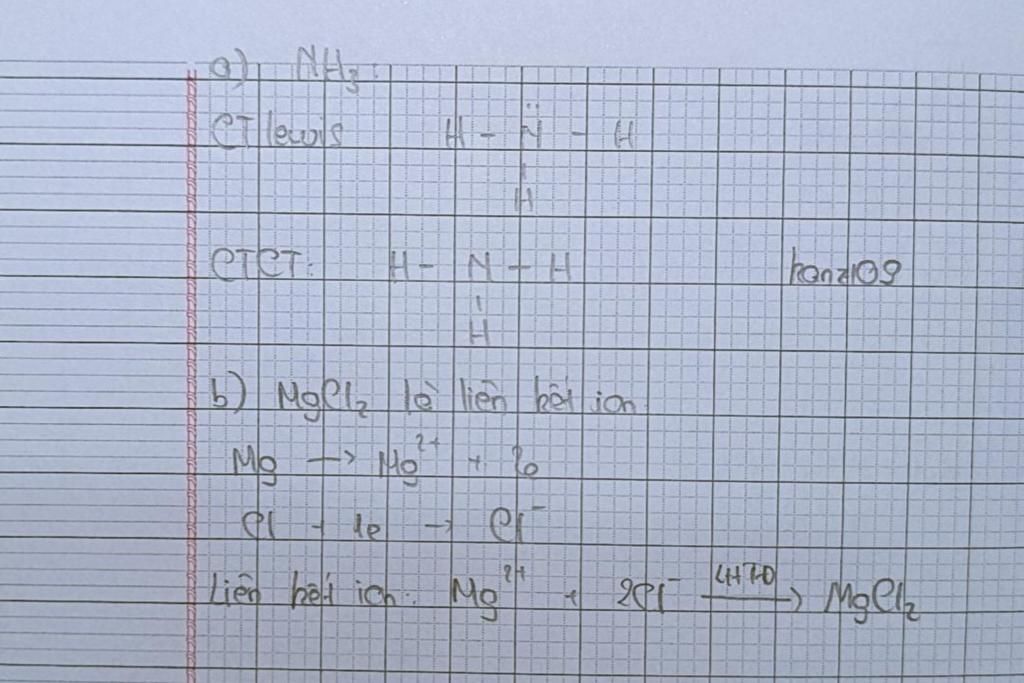 a) NH₃:
CT lewis H - N̈ - H
|
H
CTCT: H - N - H honzi09
|
H
b) MgCl₂ là liên kết ion
Mg → Mg²⁺ + 2e
Cl + 1e → Cl⁻
Liên kết ion: Mg²⁺ + 2Cl⁻ LHTĐ → MgCl₂